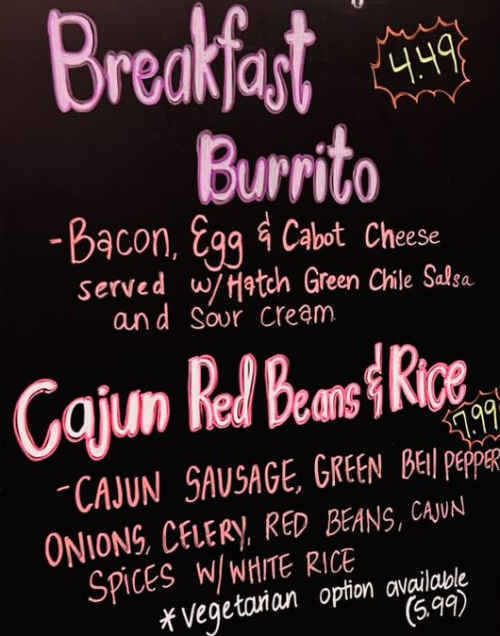 Breakfast 4.49
Burrito
-Bacon, Egg & Cabot Cheese
served w/ Hatch Green Chile Salsa
and Sour Cream
Cajun Red Beans & Rice
7.99
-CAJUN SAUSAGE, GREEN BEll PEPPER
ONIONS, CELERY, RED BEANS, CAJUN
SPICES W/ WHITE RICE
* vegetarian option available
(5.99)